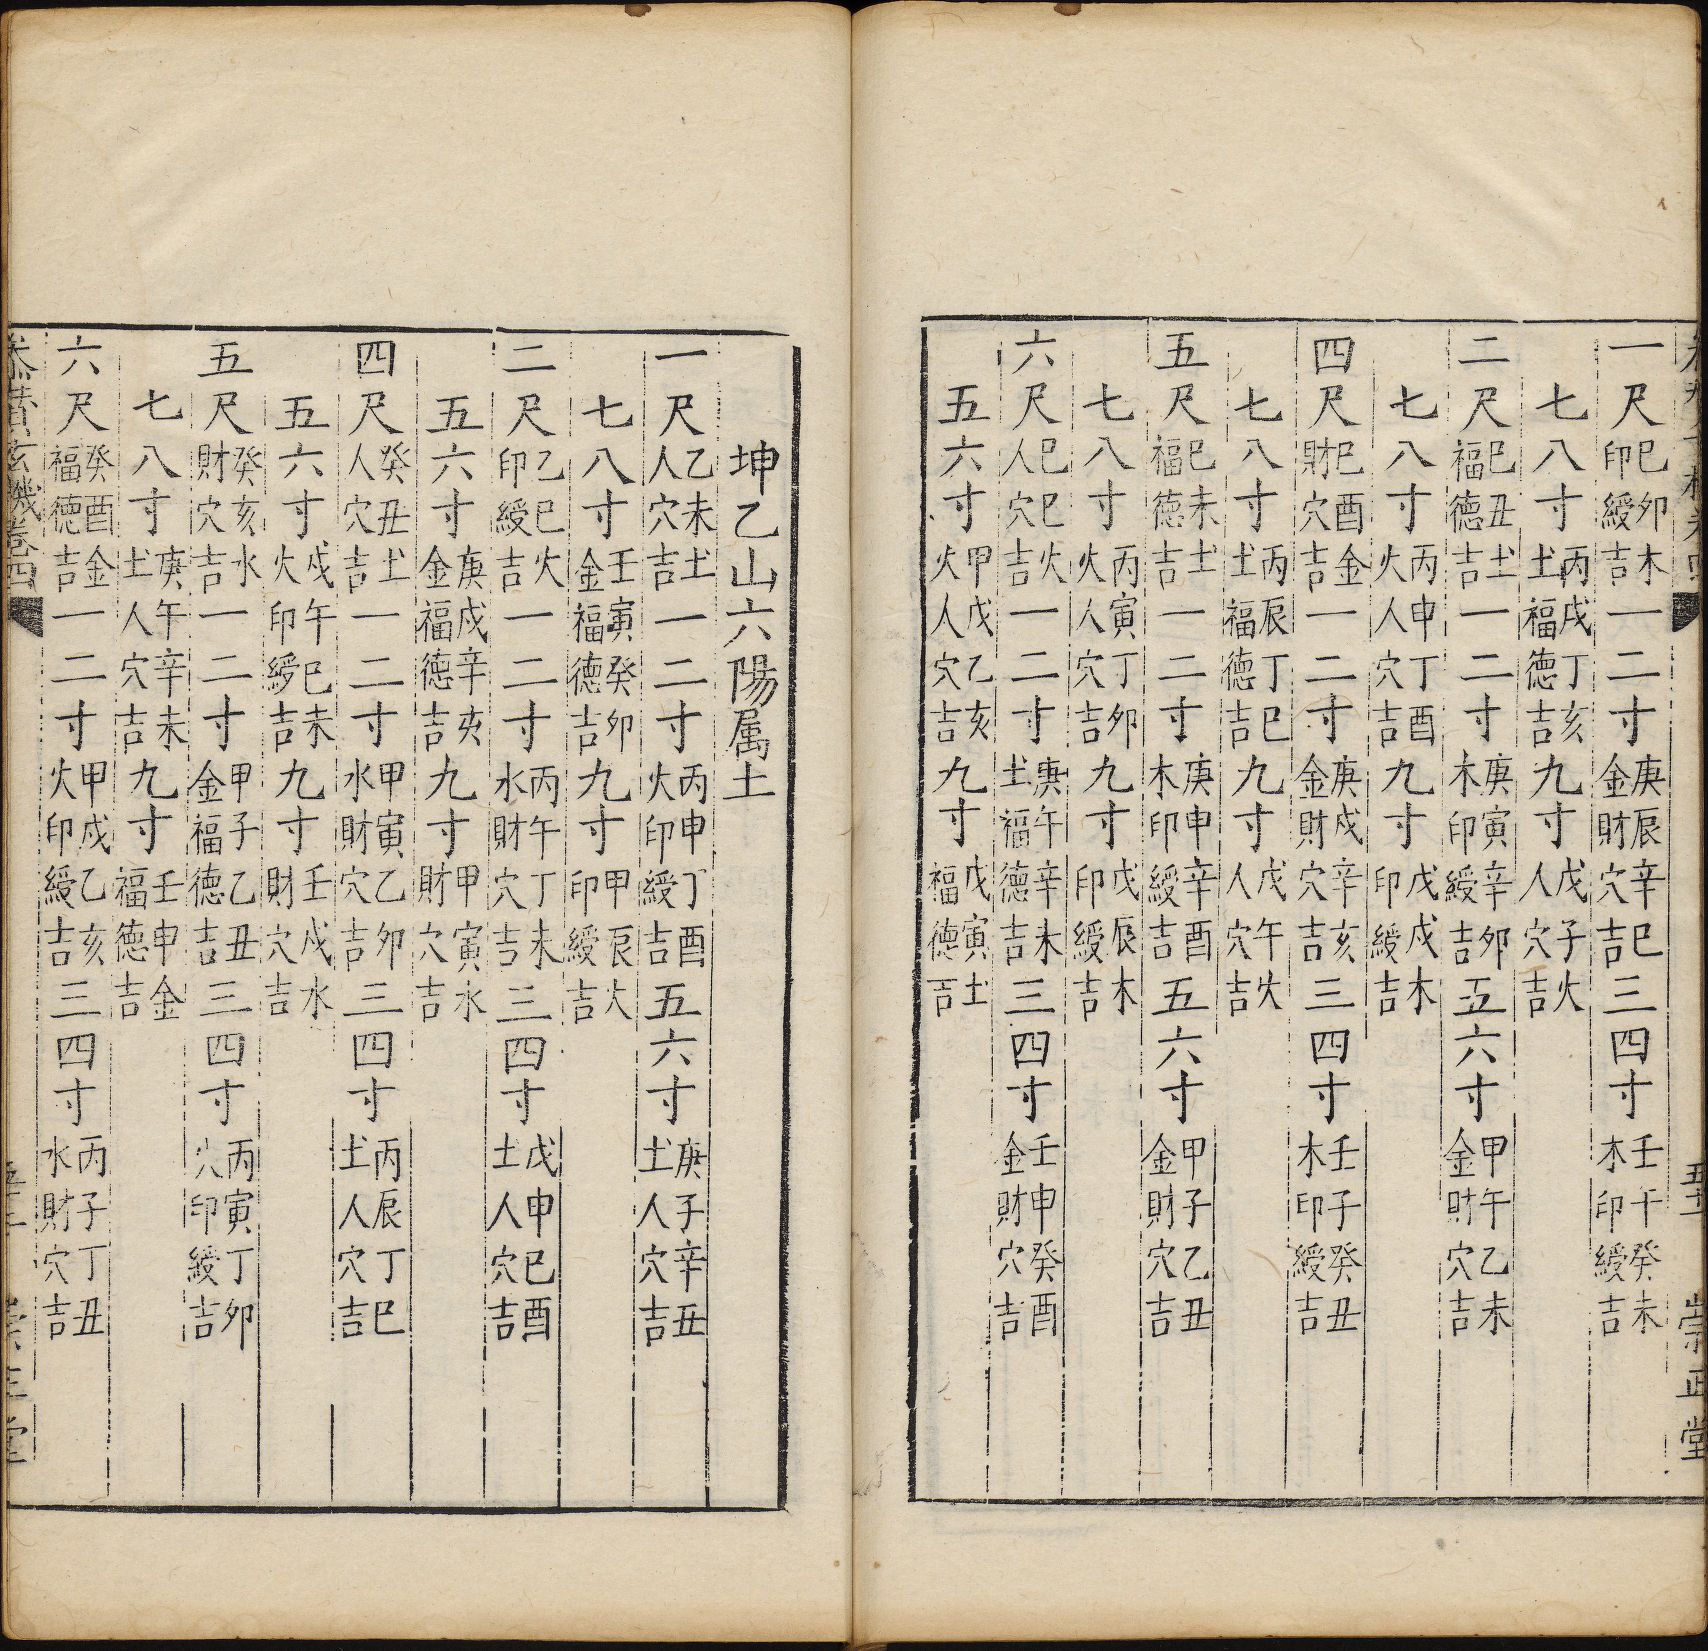 一尺己卯木印綬吉一二寸庚辰辛巳金財穴吉三四寸壬午癸未木印綬吉
七八寸丙戌丁亥土福德吉九寸戊子火人穴吉
二尺己丑土福德吉一二寸庚寅辛卯木印綬吉五六寸甲午乙未金財穴吉
七八寸丙申丁酉火人穴吉九寸戊戌木印綬吉
四尺己酉金財穴吉一二寸庚戌辛亥金財穴吉三四寸壬子癸丑木印綬吉
七八寸丙辰丁巳土福德吉九寸戊午火人穴吉
五尺己未土福德吉一二寸庚申辛酉木印綬吉五六寸甲子乙丑金財穴吉
七八寸丙寅丁卯火人穴吉九寸戊辰木印綬吉
六尺己巳火人穴吉一二寸庚午辛未土福德吉三四寸壬申癸酉金財穴吉
五六寸甲戌乙亥火人穴吉九寸戊寅土福德吉
坤乙山六陽属土
一尺乙未土人穴吉一二寸丙申丁酉火印綬吉五六寸庚子辛丑土人穴吉
七八寸壬寅癸卯金福德吉九寸甲辰火印綬吉
二尺乙巳火印綬吉一二寸丙午丁未水財穴吉三四寸戊申己酉土人穴吉
五六寸庚戌辛亥金福德吉九寸甲寅水財穴吉
四尺癸丑土人穴吉一二寸甲寅乙卯水財穴吉三四寸丙辰丁巳土人穴吉
五六寸戊午己未火印綬吉九寸壬戌水財穴吉
五尺癸亥水財穴吉一二寸甲子乙丑金福德吉三四寸丙寅丁卯火印綬吉
七八寸庚午辛未土人穴吉九寸壬申金福德吉
六尺癸酉金福德吉一二寸甲戌乙亥火印綬吉三四寸丙子丁丑水財穴吉
玄機卷四
崇正堂